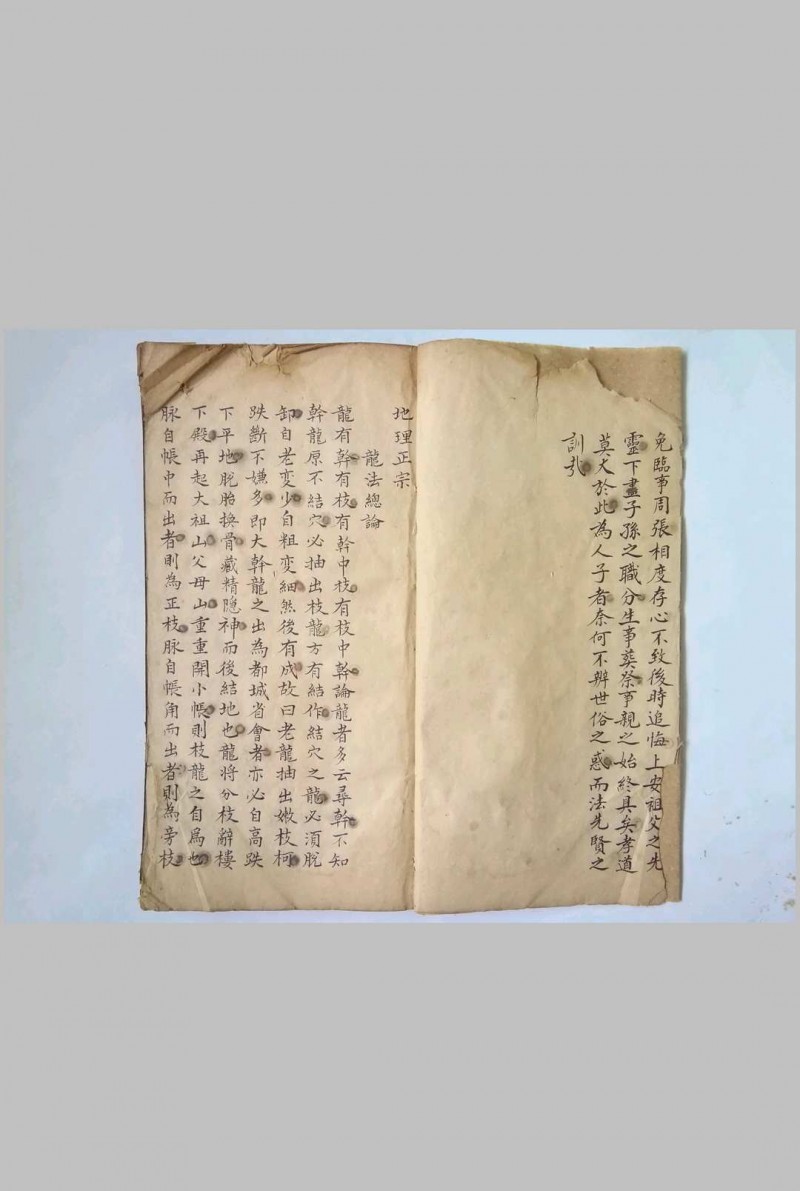 免臨事周張相度存心不致後時追悔上安祖父之先
靈下盡子孫之職分生事葬祭事親之始終具矣孝道
莫大於此為人子者奈何不辨世俗之惑而法先賢之
訓哉
地理正宗
龍法總論
龍有幹有枝有幹中枝有枝中幹論龍者多云尋幹不知
幹龍原不結穴必抽出枝龍方有結作結穴之龍必須脫
卸自老変少自粗変細然後有成故曰老龍抽出嫩枝柯
跌断不嫌多即大幹龍之出為都城省會者亦必自高跌
下平地脫胎換骨藏精隱神而後結地也龍將分枝辭樓
下殿再起大祖山父母山重重開小帳則枝龍之自為也
脉自帳中而出者則為正枝脉自帳角而出者則為旁枝